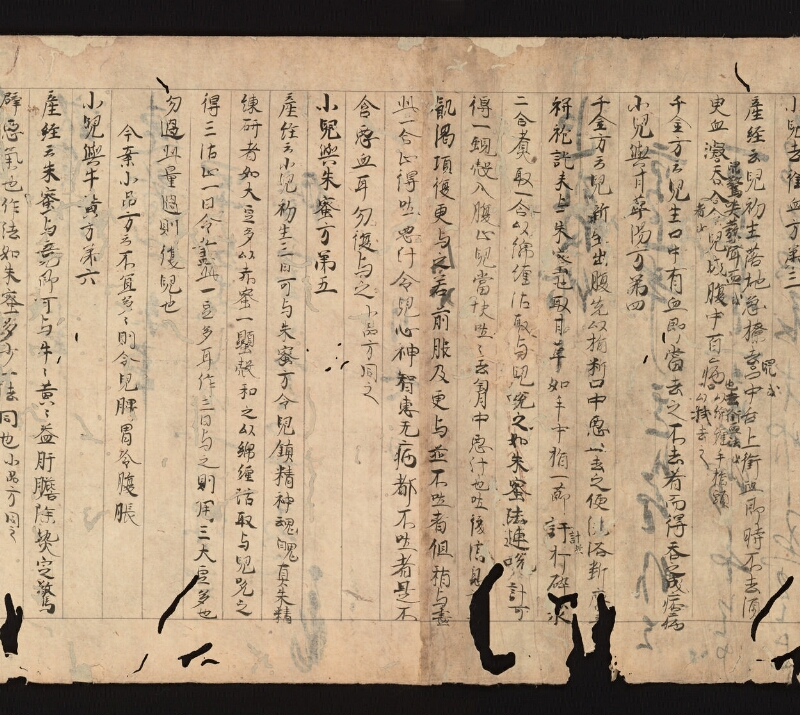 小兒去銜血方第三
產經云兒初生落地急撩去中舌上銜血即時不去須
臾血凝吞入兒成腹中百病
千金方云兒生口中有血即當去之不去者兒若得吞之成痰病
小兒與甘草湯方第四
千金方云兒新生出腹先以指斷口中惡血去之便洗浴斷
襁袍訖未与朱蜜取甘草如手中指一節許打碎以水
二合煮取一合以綿纏沾取与兒吮之如朱蜜法連吮計可
得一蜆殻入腹止兒當快吐吐去胷中惡汁也吐後消息
飢渴須復更与之若前服及更与並不吐者但稍与盡
此一合止得吐惡汁令兒心神智惠无病都不吐者是不
含惡血耳勿復与之小品方同之
小兒與朱蜜方第五
產經云小兒初生三日可与朱蜜方令兒鎮精神魂魄真朱精
練研者如大豆多以赤蜜一蜆殻和之以綿纏沾取与兒吮之
得三沾止一日令盡此一豆多耳作三日与之則用三大豆多也
勿過此量過則復兒也
今案小品方云不宜多多則令兒脾胃冷腹脹
小兒與牛黃方第六
產經云朱蜜与竟即可与牛牛黃黃益肝膽除熱定驚
辟惡氣也作法如朱蜜多少一法同也小品方同之